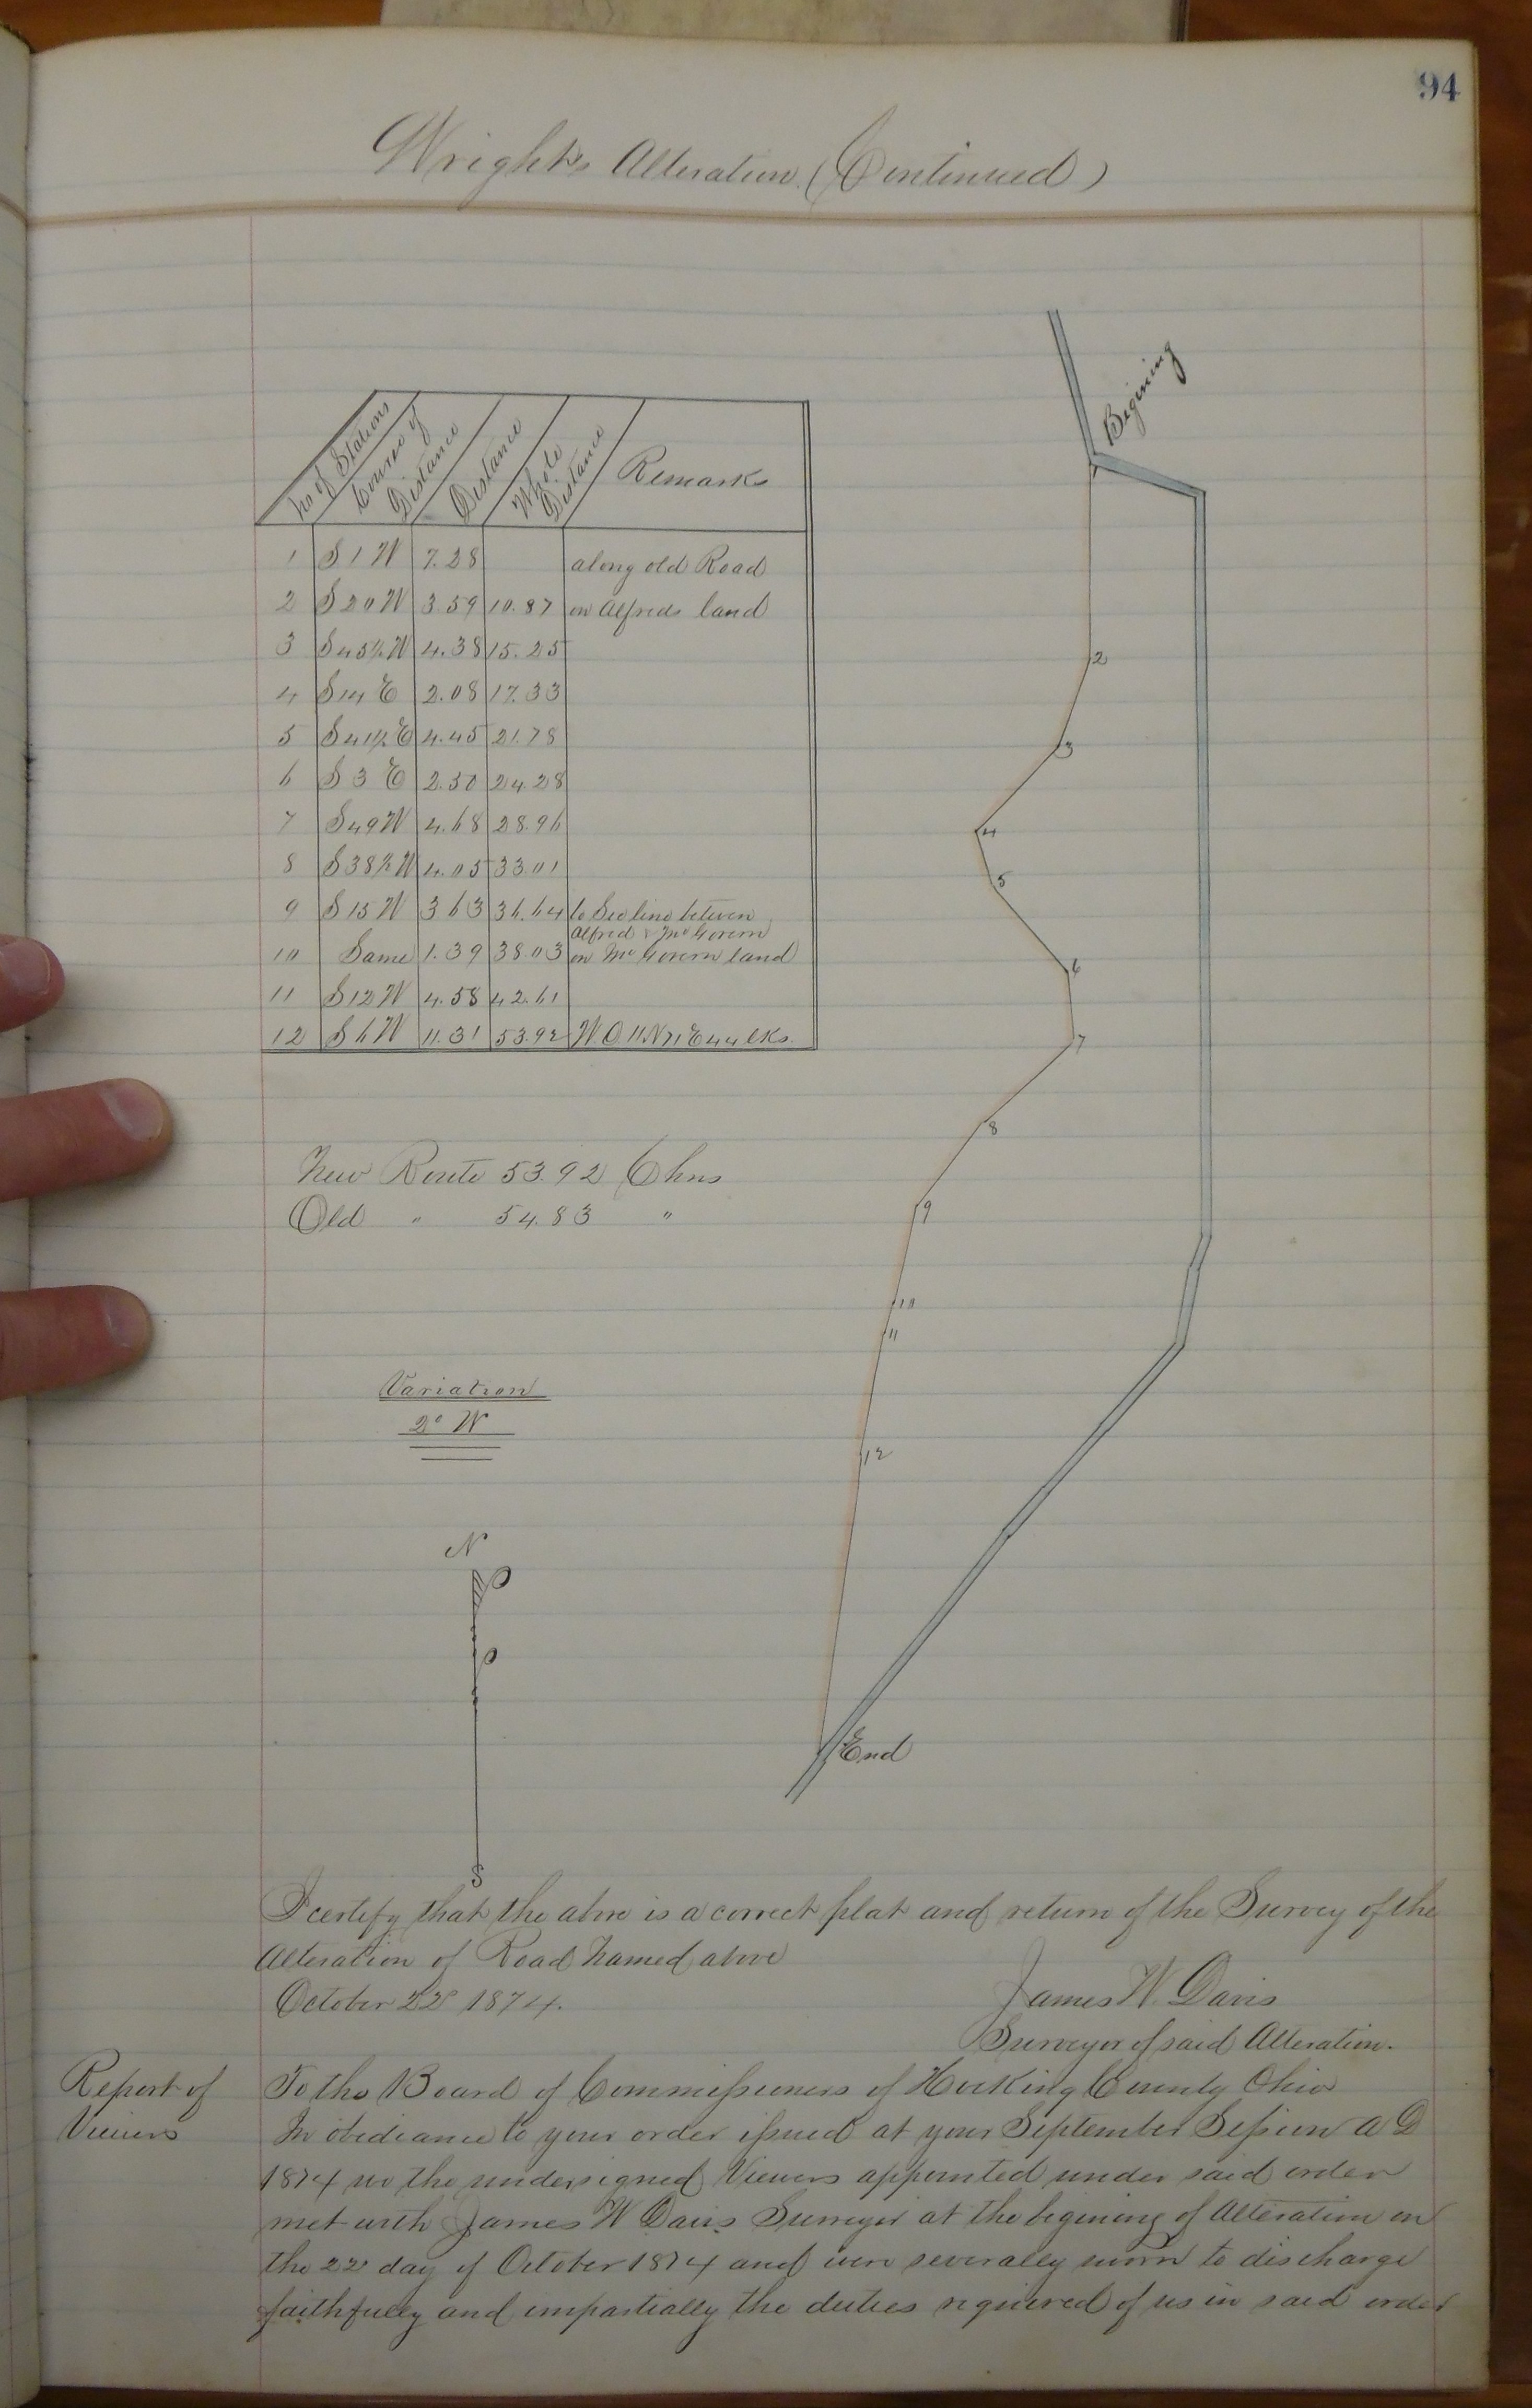 94
Wright's Alteration (Continued)
No of Stations
Courses of
Distance
Distance
Whole
Distance
Remarks
1 S 1 W 7.28 along old Road
2 S 20 W 3.59 10.87 on Alfreds land
3 S 45½ W 4.38 15.25
4 S 14 E 2.08 17.33
5 S 41½ E 4.45 21.78
6 S 3 E 2.50 24.28
7 S 49 W 4.68 28.96
8 S 38½ W 4.05 33.01
9 S 15 W 3 63 36.64 to Sec line betwen
Alfred & McGovern
10 Same 1.39 38.03 on McGovern land
11 S 12 W 4.58 42.61
12 S 6 W 11.31 53.92 W.O. 11 N 71 E 44 lks.
Begining
2
3
4
5
6
7
8
9
10
11
12
End
New Route 53.92 Chns
Old " 54.83 "
Variation
2° W
N
S
I certify that the above is a correct plat and return of the Survey of the
Alteration of Road named above
October 22d 1874.
James W. Davis
Surveyor of said Alteration.
Report of
Viewers
To the Board of Commissioners of Hocking County Ohio
In obediance to your order issued at your September Session A D
1874 we the undersigned Viewers appointed under said order
met with James W Davis Surveyor at the begining of Alteration on
the 22d day of October 1874 and were severally sworn to discharge
faithfully and impartially the duties required of us in said order